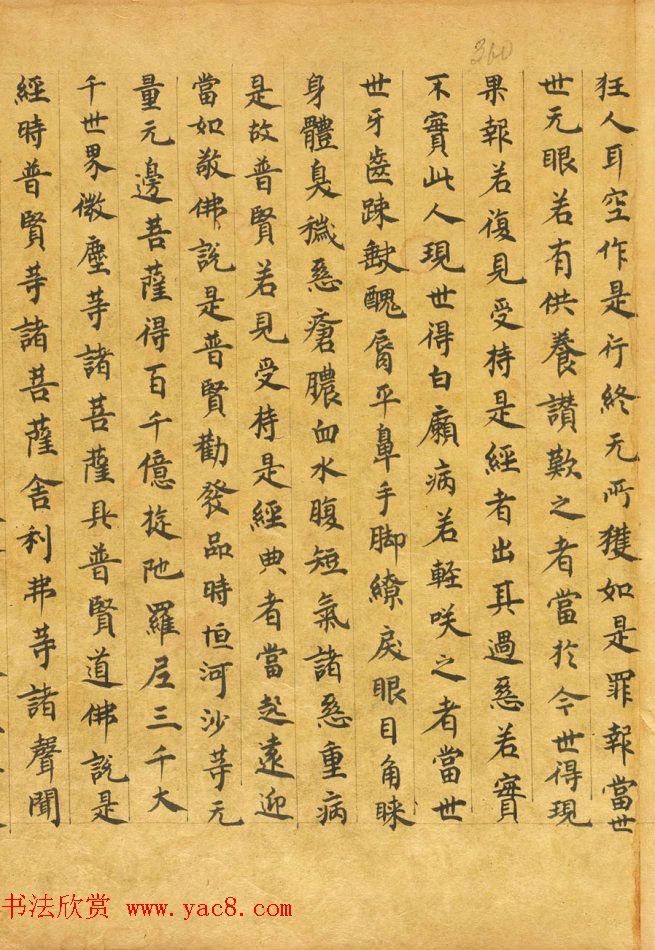 360
狂人耳空作是行終无所獲如是罪報當世
世无眼若有供養讃歎之者當於今世得現
果報若復見受持是經者出其過惡若實
不實此人現世得白癩病若軽咲之者當世
世牙齒踈缺醜脣平鼻手脚繚戾眼目角睞
身體臭穢惡瘡膿血水腹短氣諸惡重病
是故普賢若見受持是經典者當起遠迎
當如敬佛說是普賢勸發品時恒河沙等无
量无邊菩薩得百千億旋陁羅尼三千大
千世界微塵等諸菩薩具普賢道佛說是
經時普賢等諸菩薩舍利弗等諸聲聞
书法欣赏 www.yac8.com